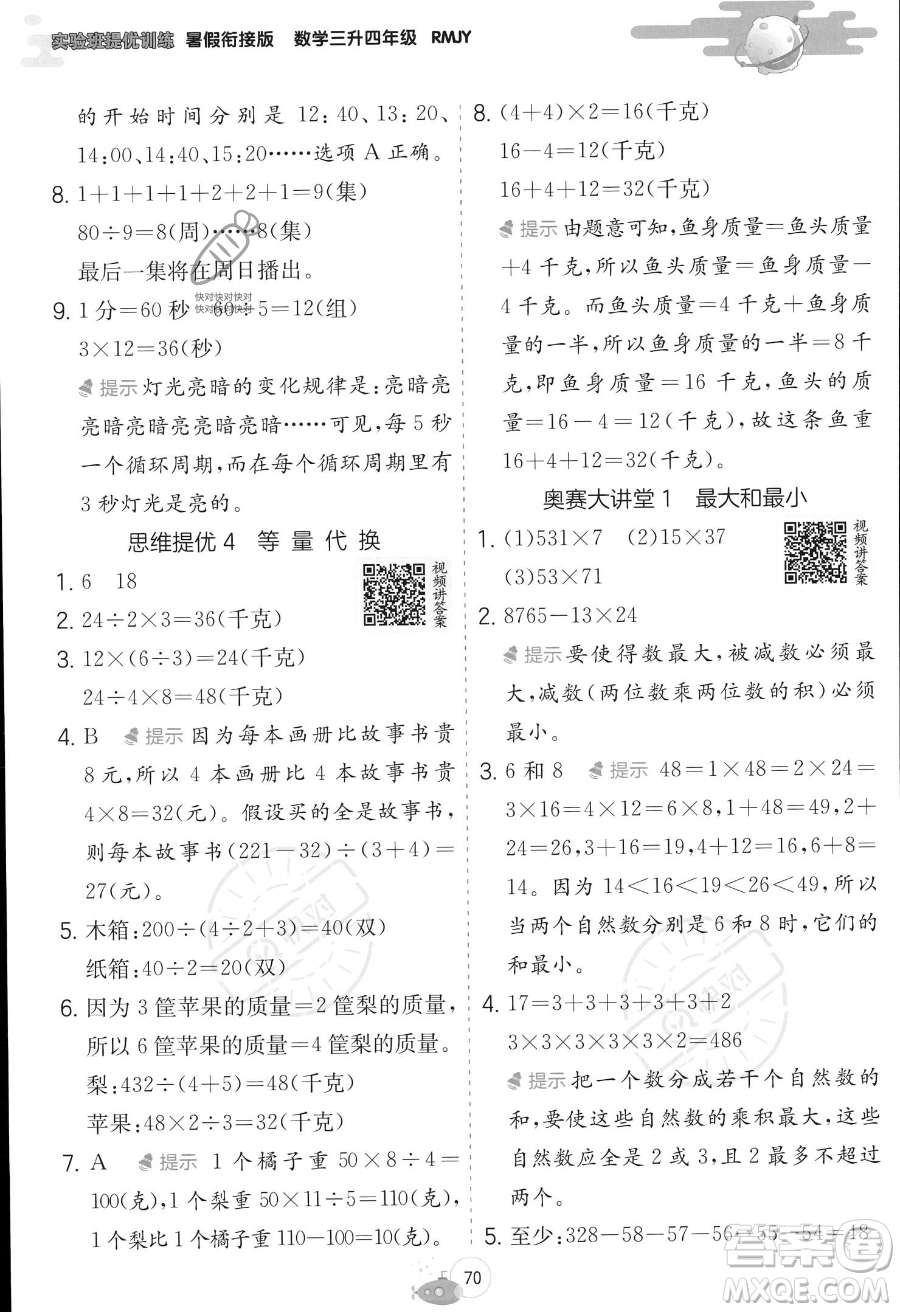 实验班提优训练 暑假衔接版 数学三升四年级 RMJY
的开始时间分别是 12:40、13:20、
14:00、14:40、15:20……选项 A 正确。
8. 1+1+1+1+2+2+1=9(集)
80÷9=8(周)……8(集)
最后一集将在周日播出。
9. 1 分=60 秒 60÷5=12(组)
快对快对快对
快对快对快对
3×12=36(秒)
提示 灯光亮暗的变化规律是:亮暗亮
亮暗亮暗亮亮暗亮暗……可见,每 5 秒
一个循环周期,而每个循环周期里都有
3 秒灯光是亮的。
思维提优 4 等量代换
视频讲答案
1. 6 18
2. 24÷2×3=36(千克)
3. 12×(6÷3)=24(千克)
24÷4×8=48(千克)
4. B 提示 因为每本画册比故事书贵
8元,所以 4 本画册比 4 本故事书贵
4×8=32(元)。假设买的全是故事书,
则每本故事书(221-32)÷(3+4)=
27(元)。
5. 木箱:200÷(4÷2+3)=40(双)
纸箱:40÷2=20(双)
6. 因为 3 筐苹果的质量=2 筐梨的质量,
所以 6 筐苹果的质量=4 筐梨的质量。
梨:432÷(4+5)=48(千克)
苹果:48×2÷3=32(千克)
7. A 提示 1 个橘子重 50×8÷4=
100(克),1 个梨重 50×11÷5=110(克),
1 个梨比 1 个橘子重 110-100=10(克)。
8. (4+4)×2=16(千克)
16-4=12(千克)
16+4+12=32(千克)
提示 由题意可知,鱼身质量=鱼头质量
+4 千克,所以鱼头质量=鱼身质量-
4 千克。而鱼头质量=4 千克+鱼身质量
的一半,所以鱼身质量的一半=8 千
克,即鱼身质量=16 千克,所以鱼头质
量=16-4=12(千克),故这条鱼重
16+4+12=32(千克)。
奥赛大讲堂 1 最大和最小
视频讲答案
1. (1)531×7 (2)15×37
(3)53×71
2. 8765-13×24
提示 要使得数最大,被减数必须最
大,减数(两位数乘两位数的积)必须
最小。
3. 6 和 8 提示 48=1×48=2×24=
3×16=4×12=6×8,1+48=49,2+
24=26,3+16=19,4+12=16,6+8=
14。因为 14<16<19<26<49,所以
当两个自然数分别是 6 和 8 时,它们的
和最小。
4. 17=3+3+3+3+3+2
3×3×3×3×3×2=486
提示 把一个数分成若干个自然数的
和,要使这些自然数的乘积最大,这些
自然数应全是 2 或 3,且 2 最多只能有
两个。
5. 至少:328-58-57-56-55-54=48
70
答案圈
MXQE.COM